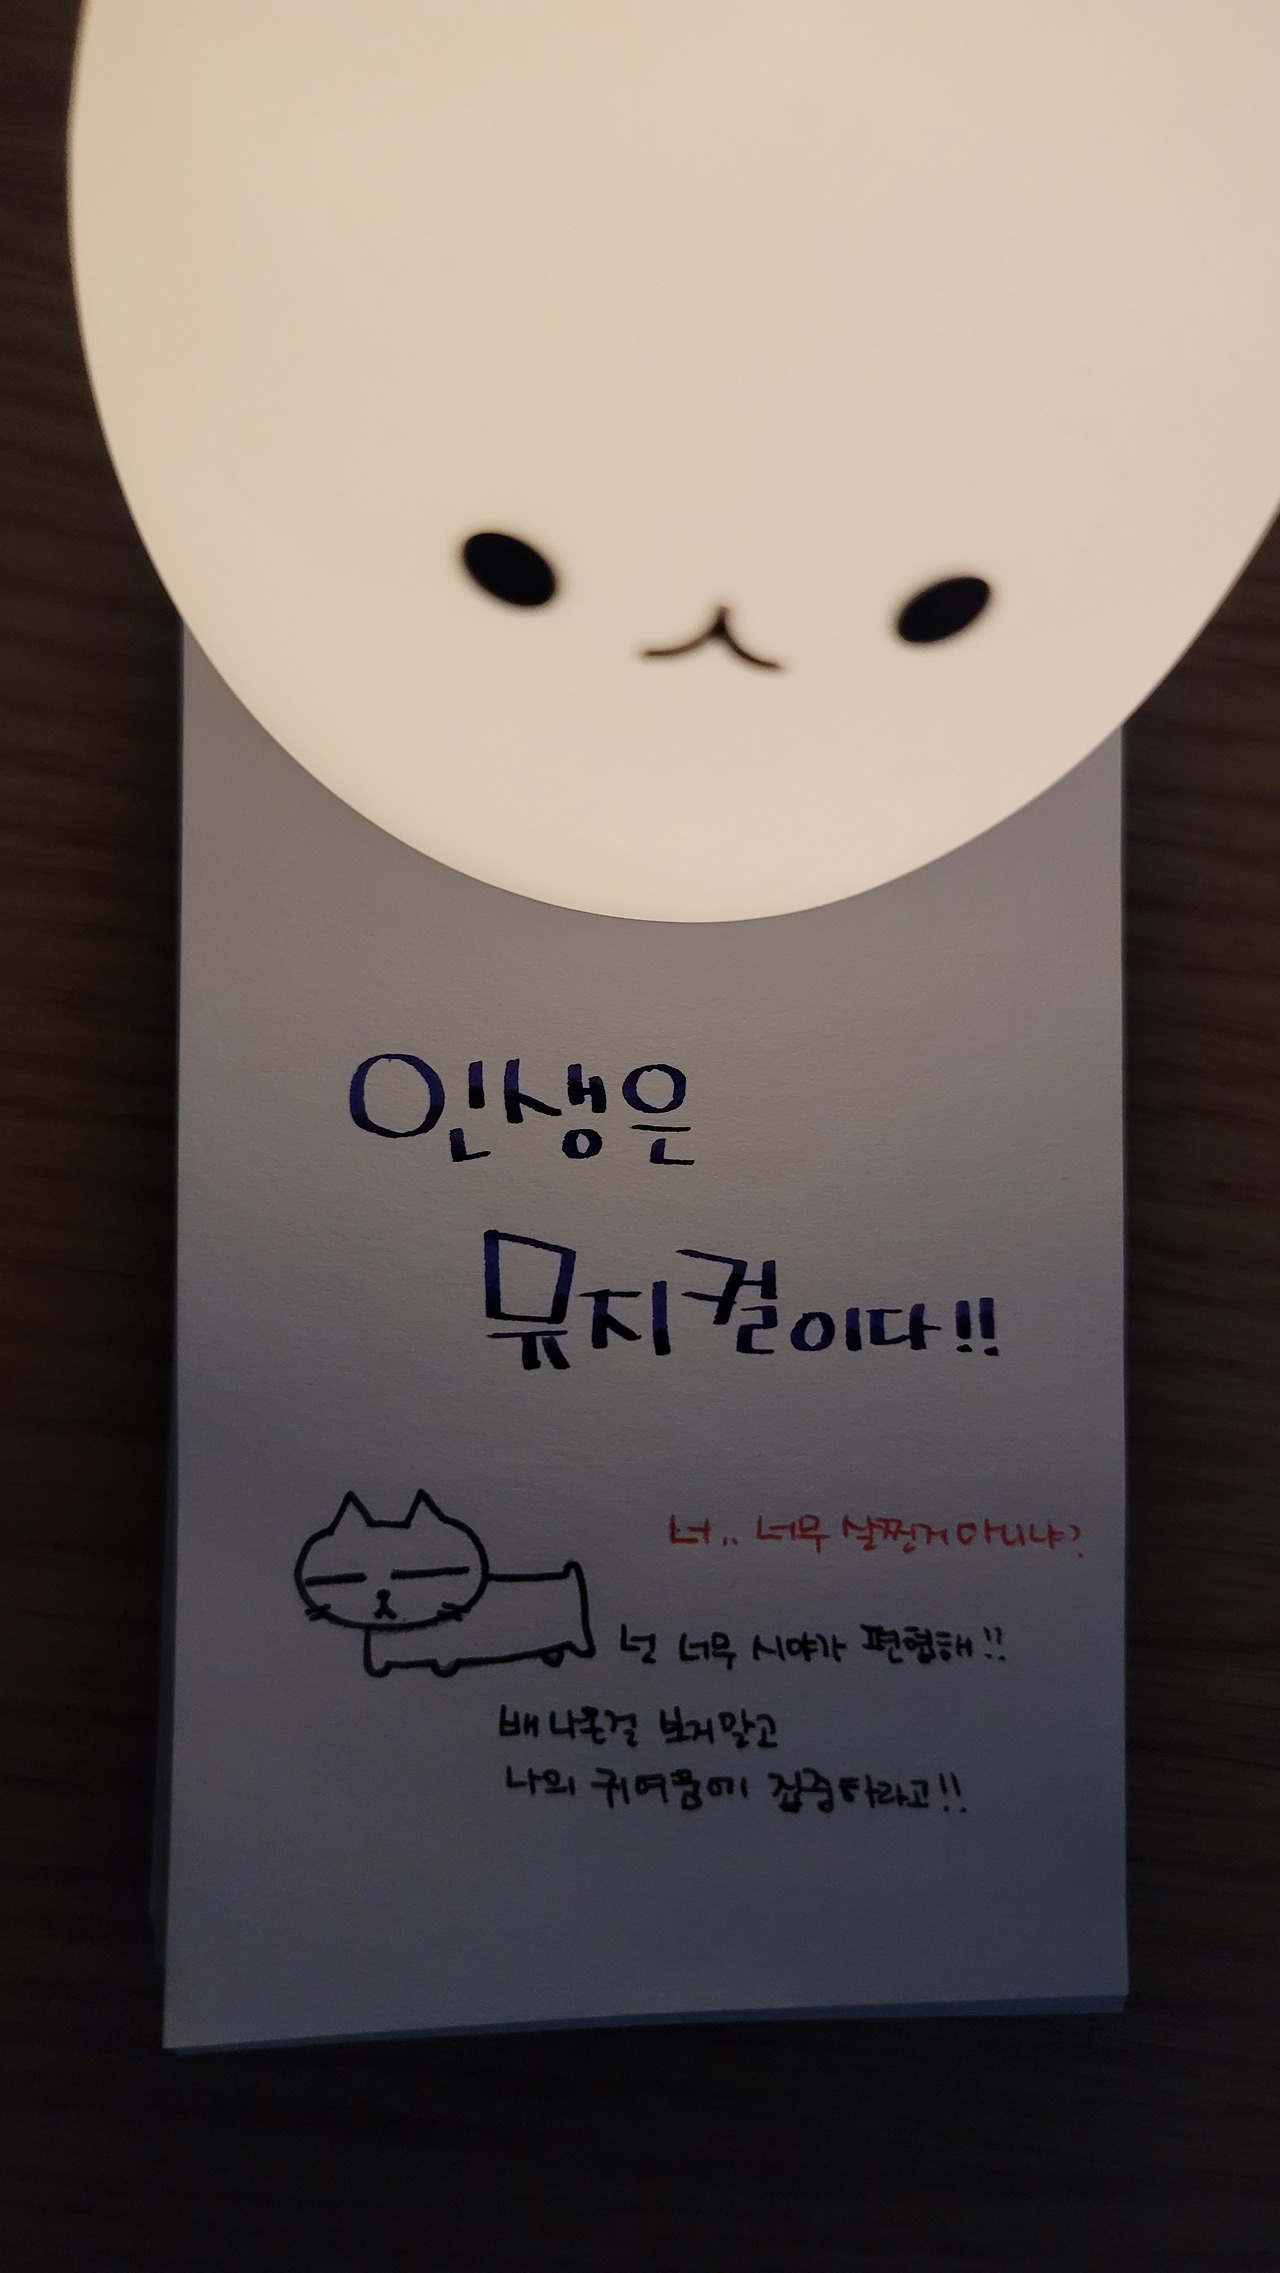 인생은
뮤지컬이다!!
너.. 너무 살찐거 아니냐?
넌 너무 시야가 편협해!!
배 나온걸 보지말고
나의 귀여움에 집중하라고!!